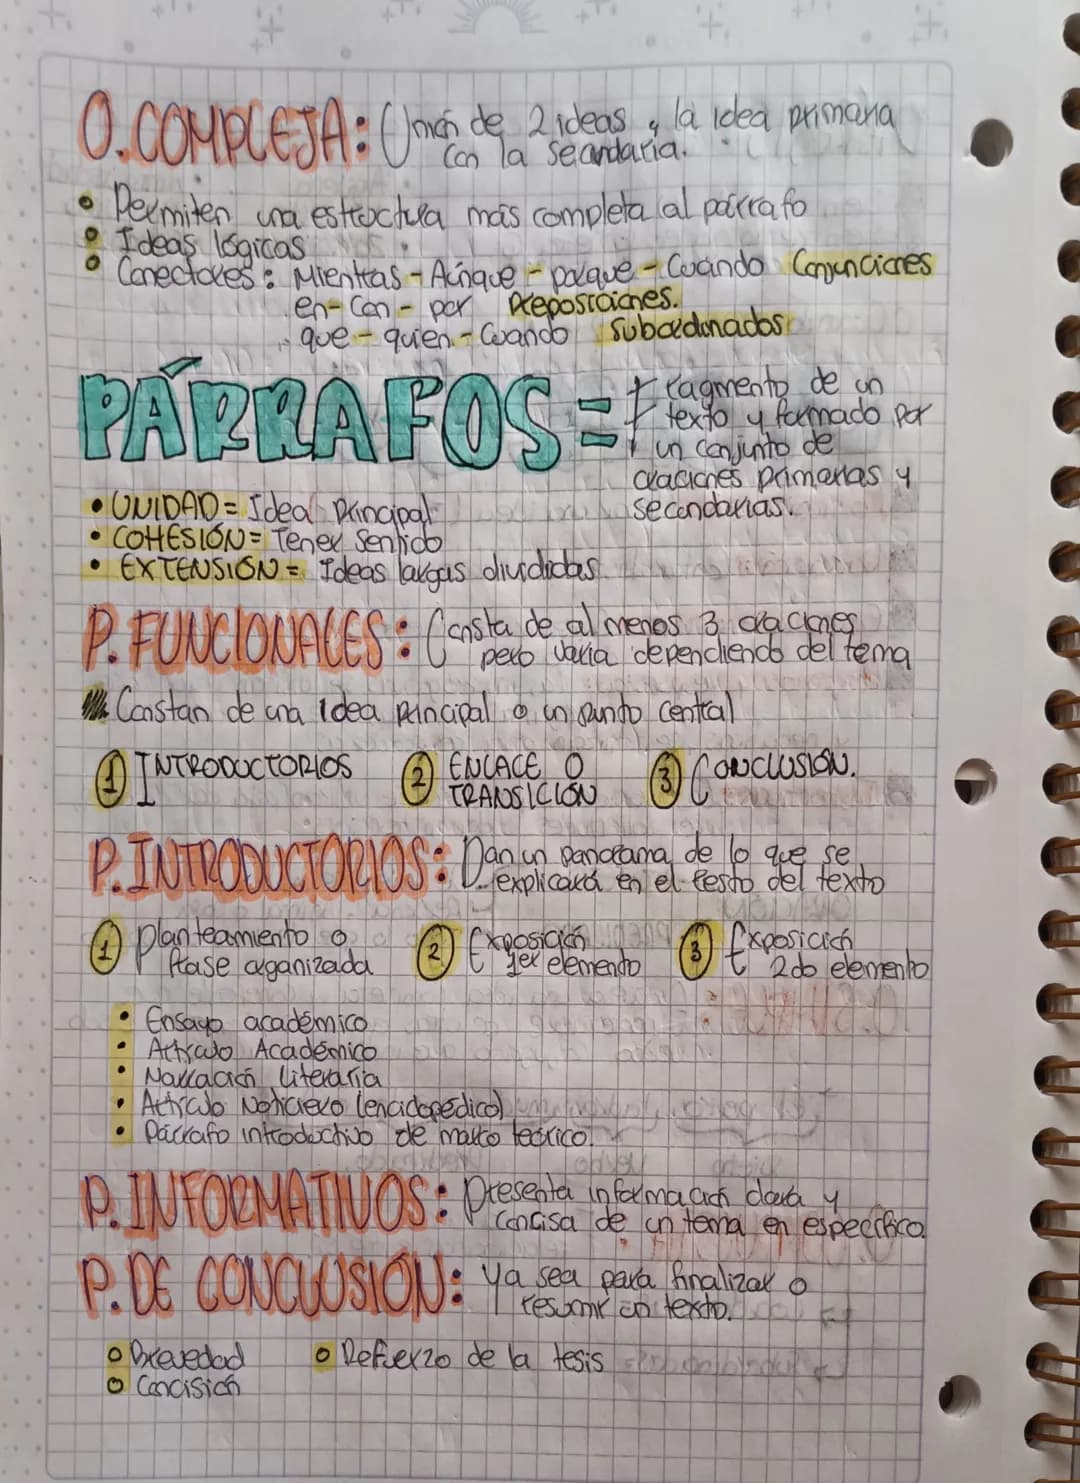 O. COMPLEJA: Unión de 2 ideas, la idea primaria
con la secundaria.
• Permiten una estructura más completa al párrafo
• Ideas lógicas
• Conectores: Mientras - Aúnque - porque - Cuando Conjunciones
en - Con - por Preposiciones.
que - quien - Cuando Subordinados
PÁRRAFOS = Fragmento de un
texto y formado por
un conjunto de
oraciones primarias y
secundarias.
• UNIDAD = Idea Principal
• COHESIÓN = Tener Sentido
• EXTENSIÓN = Ideas largas divididas
P. FUNCIONALES: Consta de al menos 3 oraciones
pero varia dependiendo del tema
Constan de una idea principal o un punto central
① INTRODUCTORIOS ② ENLACE O ③ CONCLUSIÓN.
TRANSICIÓN
P. INTRODUCTORIOS: Dan un panorama de lo que se
explicará en el resto del texto
① Planteamiento o ② Exposición ③ Exposición
frase organizada 1er elemento 2do elemento
• Ensayo académico
• Artículo Académico
• Narración literaria
• Artículo Noticiero (enciclopédico)
• Párrafo introductivo de marco teórico.
P. INFORMATIVOS: Presenta información clara y
concisa de un tema en específico.
P. DE CONCLUSIÓN: Ya sea para finalizar o
resumir un texto.
• Brevedad • Refuerzo de la tesis
• Concisión